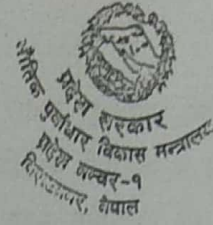 प्रदेश सरकार
भौतिक पूर्वाधार विकास मन्त्रालय
प्रदेश नम्बर-१
विराटनगर, नेपाल